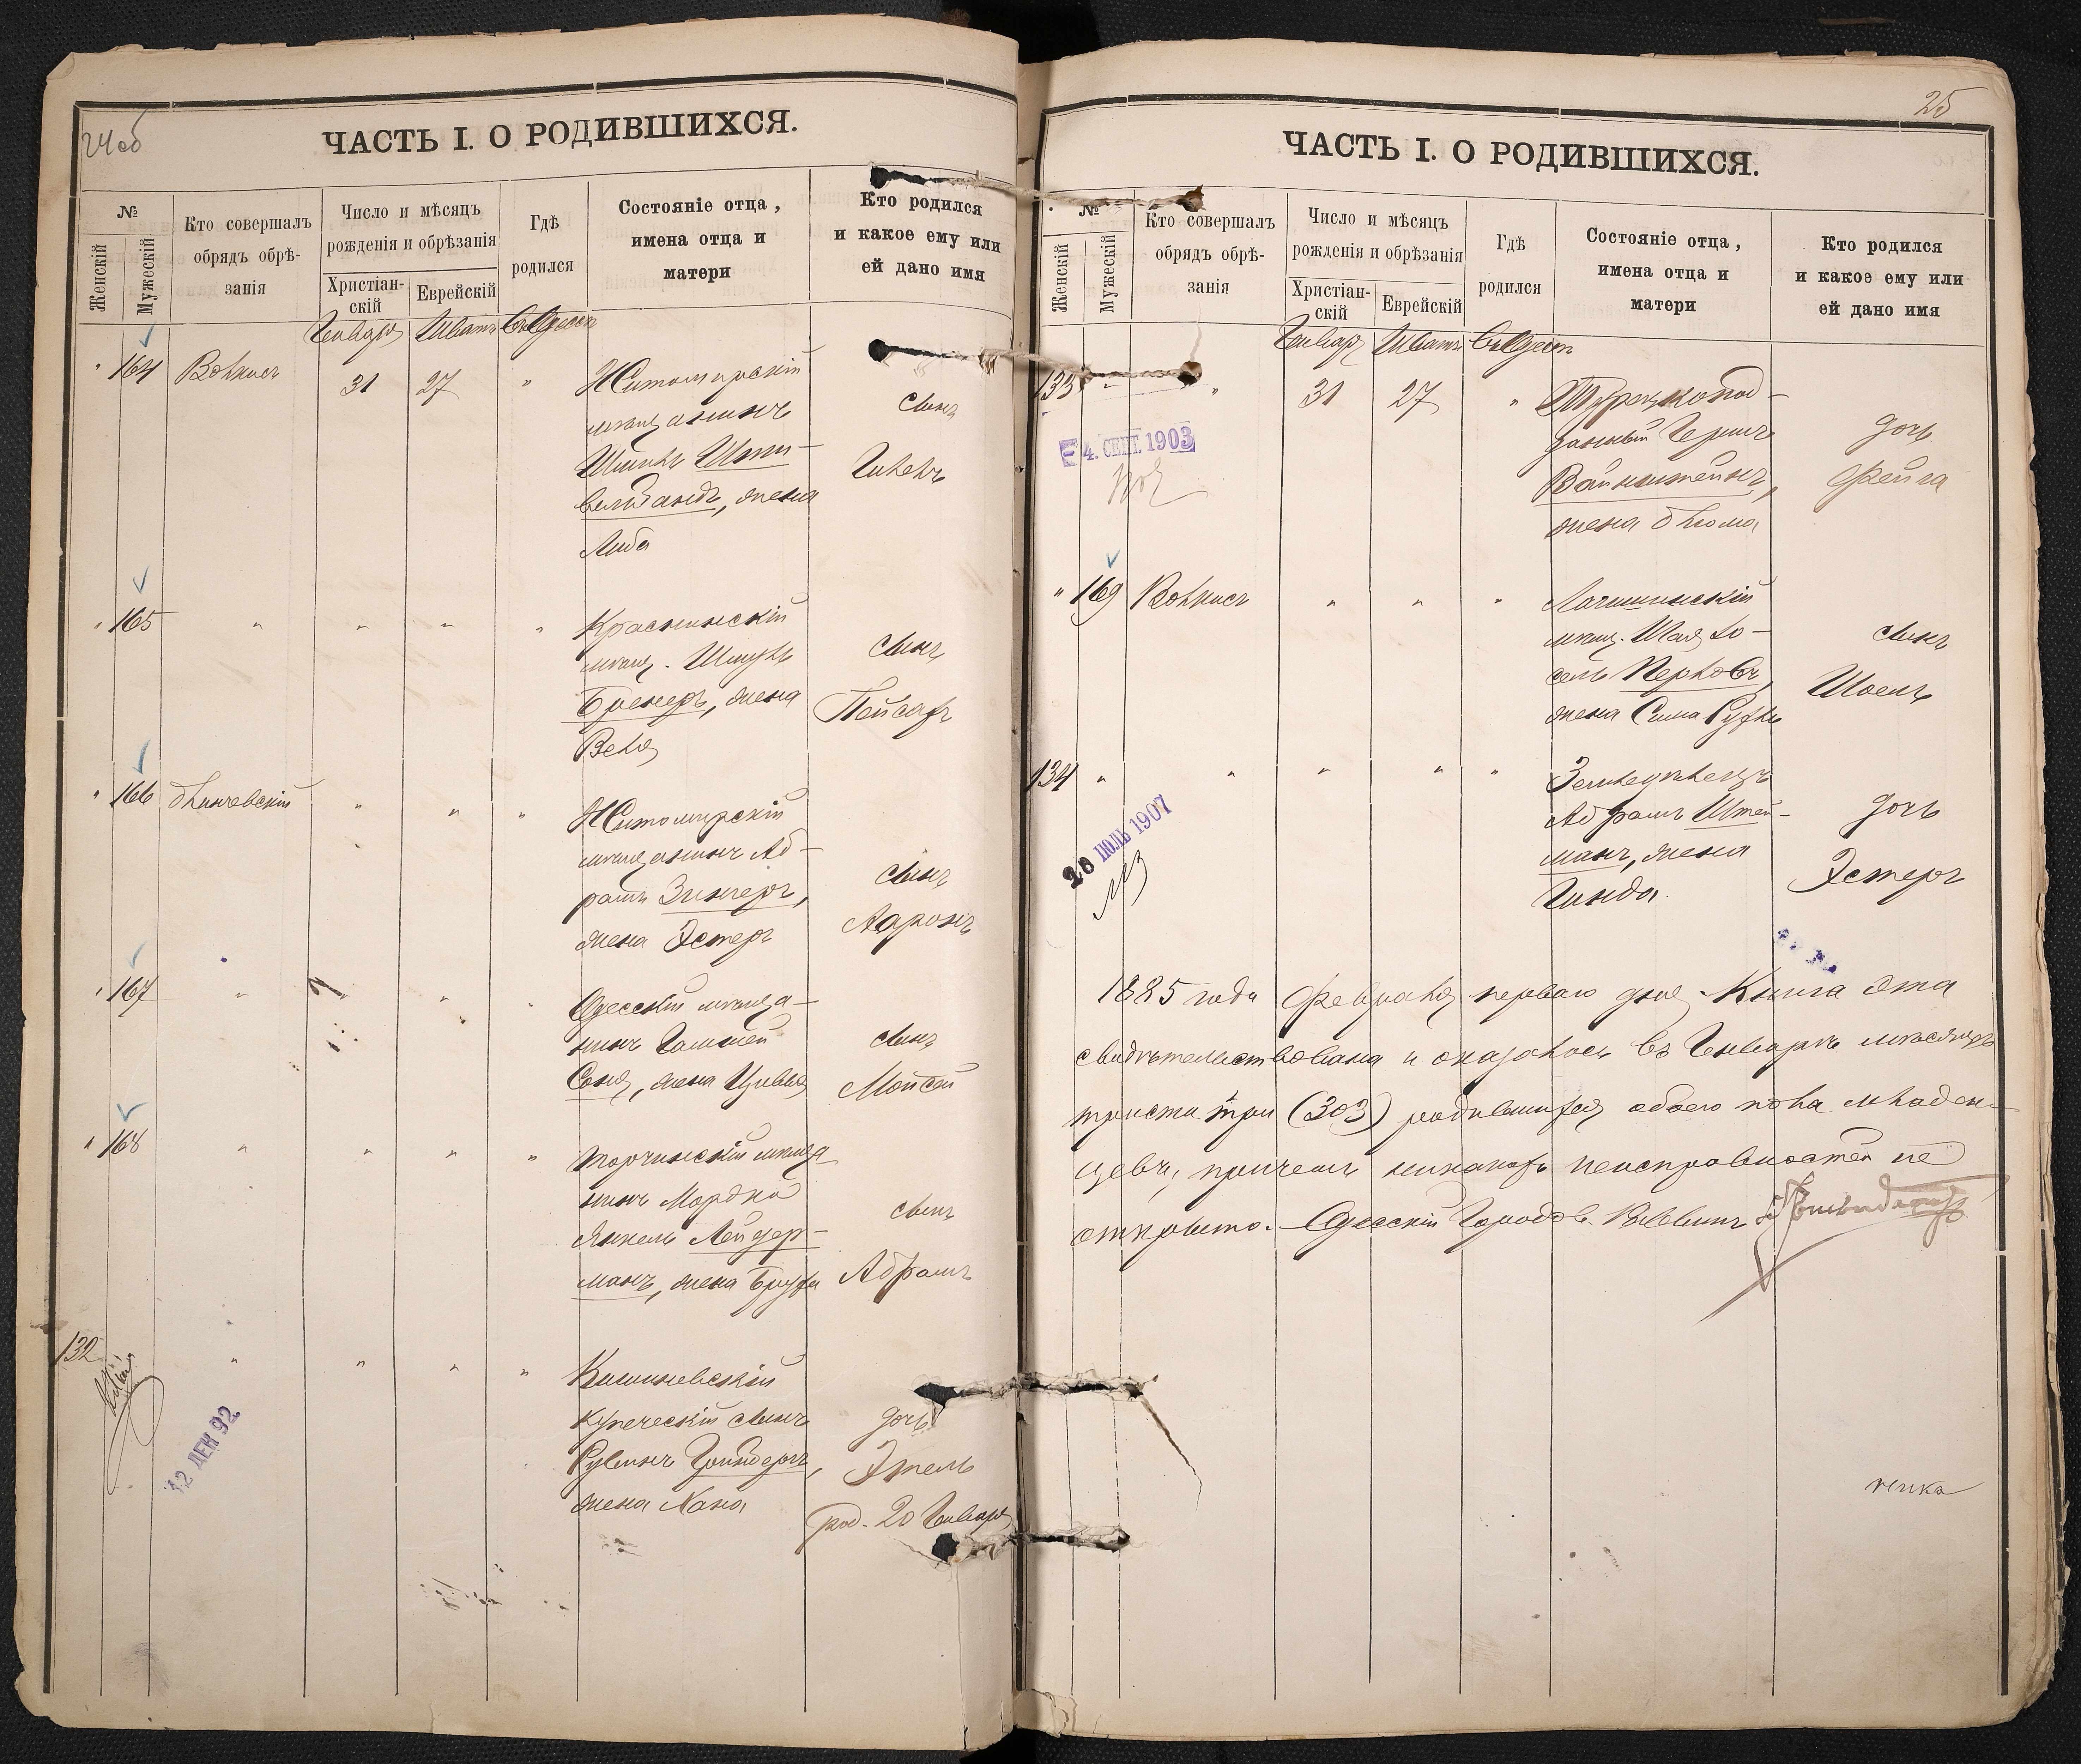 24об
ЧАСТЬ I. О РОДИВШИХСЯ.
№
Женскій
Мужескій
Кто совершалъ
обрядъ обрѣ-
занія
Число и мѣсяцъ
рожденія и обрѣзанія
Христіан-
скій
Еврейскій
Гдѣ
родился
Состояніе отца,
имена отца и
матери
Кто родился
и какое ему или
ей дано имя
Январь Шватъ Въ Одессѣ
" 164 Волкисъ 31 27 " Житомирскій
мѣщанинъ
жена
Либа
сынъ
" 165 " " " " Краснинскій
мѣщ. Шмуль
Бренеръ, жена
Веля
сынъ
Пейсахъ
" 166 " " " Житомирскій
мѣщанинъ Аб-
рамъ Зингеръ,
жена Эстеръ
сынъ
Ааронъ
" 167 " " " " Одесскій мѣща-
нинъ
Соня, жена Цивья
сынъ
Мойсей
" 168 " " " " Торчинскій мѣща
нинъ Мордко
Янкель Лейдер-
манъ, жена Бруха
сынъ
Абрамъ
132 " " " " Кишиневскій
купеческій сынъ
Рувинъ Гринбергъ,
жена Хана
дочь
Этель
род. 20 Января
12 ДЕК 92
25
ЧАСТЬ I. О РОДИВШИХСЯ.
№
Женскій
Мужескій
Кто совершалъ
обрядъ обрѣ-
занія
Число и мѣсяцъ
рожденія и обрѣзанія
Христіан-
скій
Еврейскій
Гдѣ
родился
Состояніе отца,
имена отца и
матери
Кто родился
и какое ему или
ей дано имя
Январь Шватъ Въ Одессѣ
133 - " 31 27 " Турецкопод-
данный Гершъ
Вайнштейнъ,
жена Блюма
дочь
Фейга
4. СЕНТ. 1903
" 169 Волкисъ " " "
мѣщ. Шая Іо-
сель Перловъ,
жена Сима Рухля
сынъ
Шоель
134 " " " " " Земледѣлецъ
Абрамъ Штей-
манъ, жена
Гинда.
дочь
Эстеръ
20 ІЮЛЬ 1907
1885 года Февраля перваго дня Книга эта
свидѣтельствована и оказалось въ Январѣ мѣсяцѣ
триста три (303) родившихся обоего пола младен-
цевъ, причемъ никакихъ неисправностей не
открыто. Одесскій Городов. Раввинъ